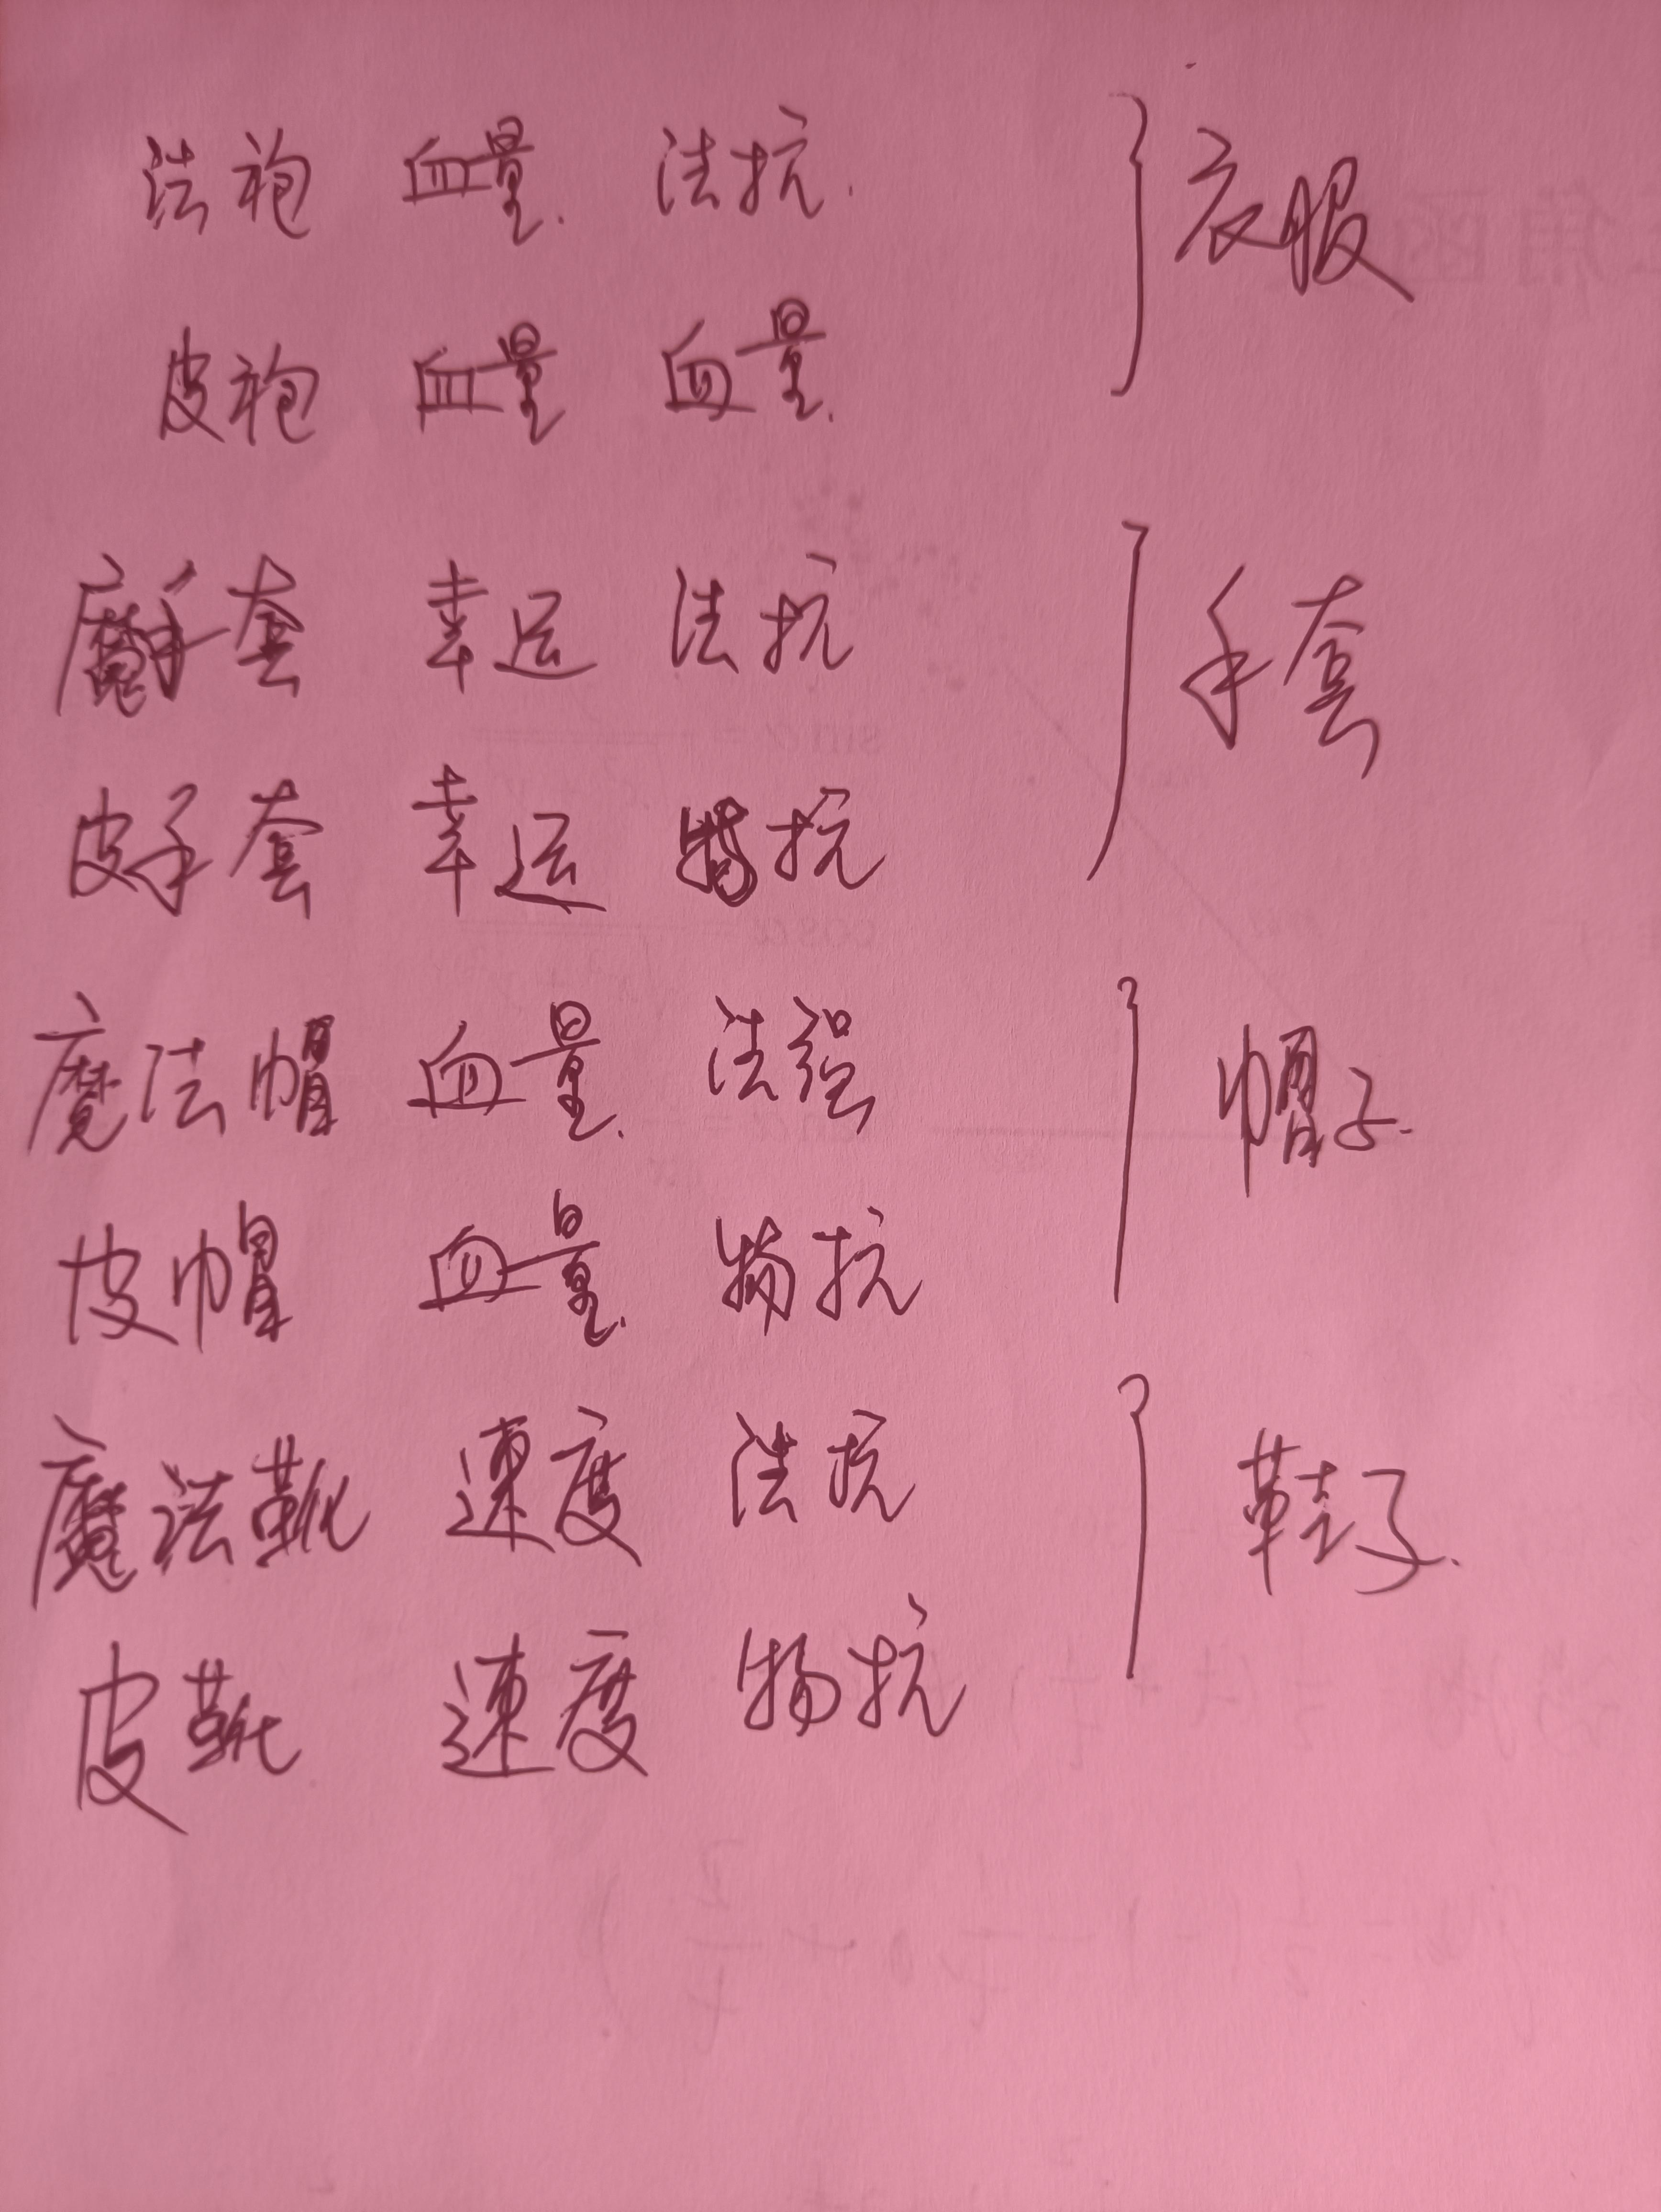 法袍 血量 法抗
皮袍 血量 血量
衣服
魔手套 幸运 法抗
皮手套 幸运 物抗
手套
魔法帽 血量 法强
皮帽 血量 物抗
帽子
魔法靴 速度 法抗
皮靴 速度 物抗
鞋子